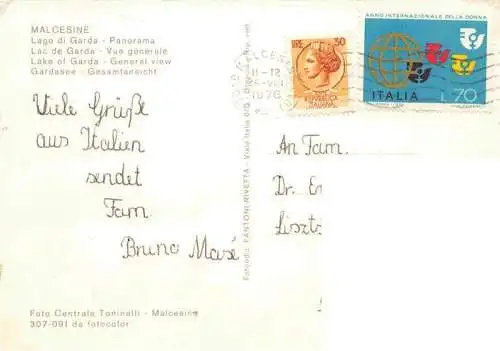 MALCESINE
Lago di Garda - Panorama
Lac de Garda - Vue générale
Lake of Garda - General view
Gardasee - Gesamtansicht
Viele Grüße
aus Italien
sendet
Fam.
Bruno Masé
Foto Centrale Toninelli - Malcesine
307-091 da fotocolor
Fotoediz. FANTONI RIVETTA - Viale Italia
LIRE 30
REPUBBLICA
ITALIANA
MALCESINE
11-12
1976
ANNO INTERNAZIONALE DELLA DONNA
ITALIA L.70
An Fam.
Dr. E
Liszt